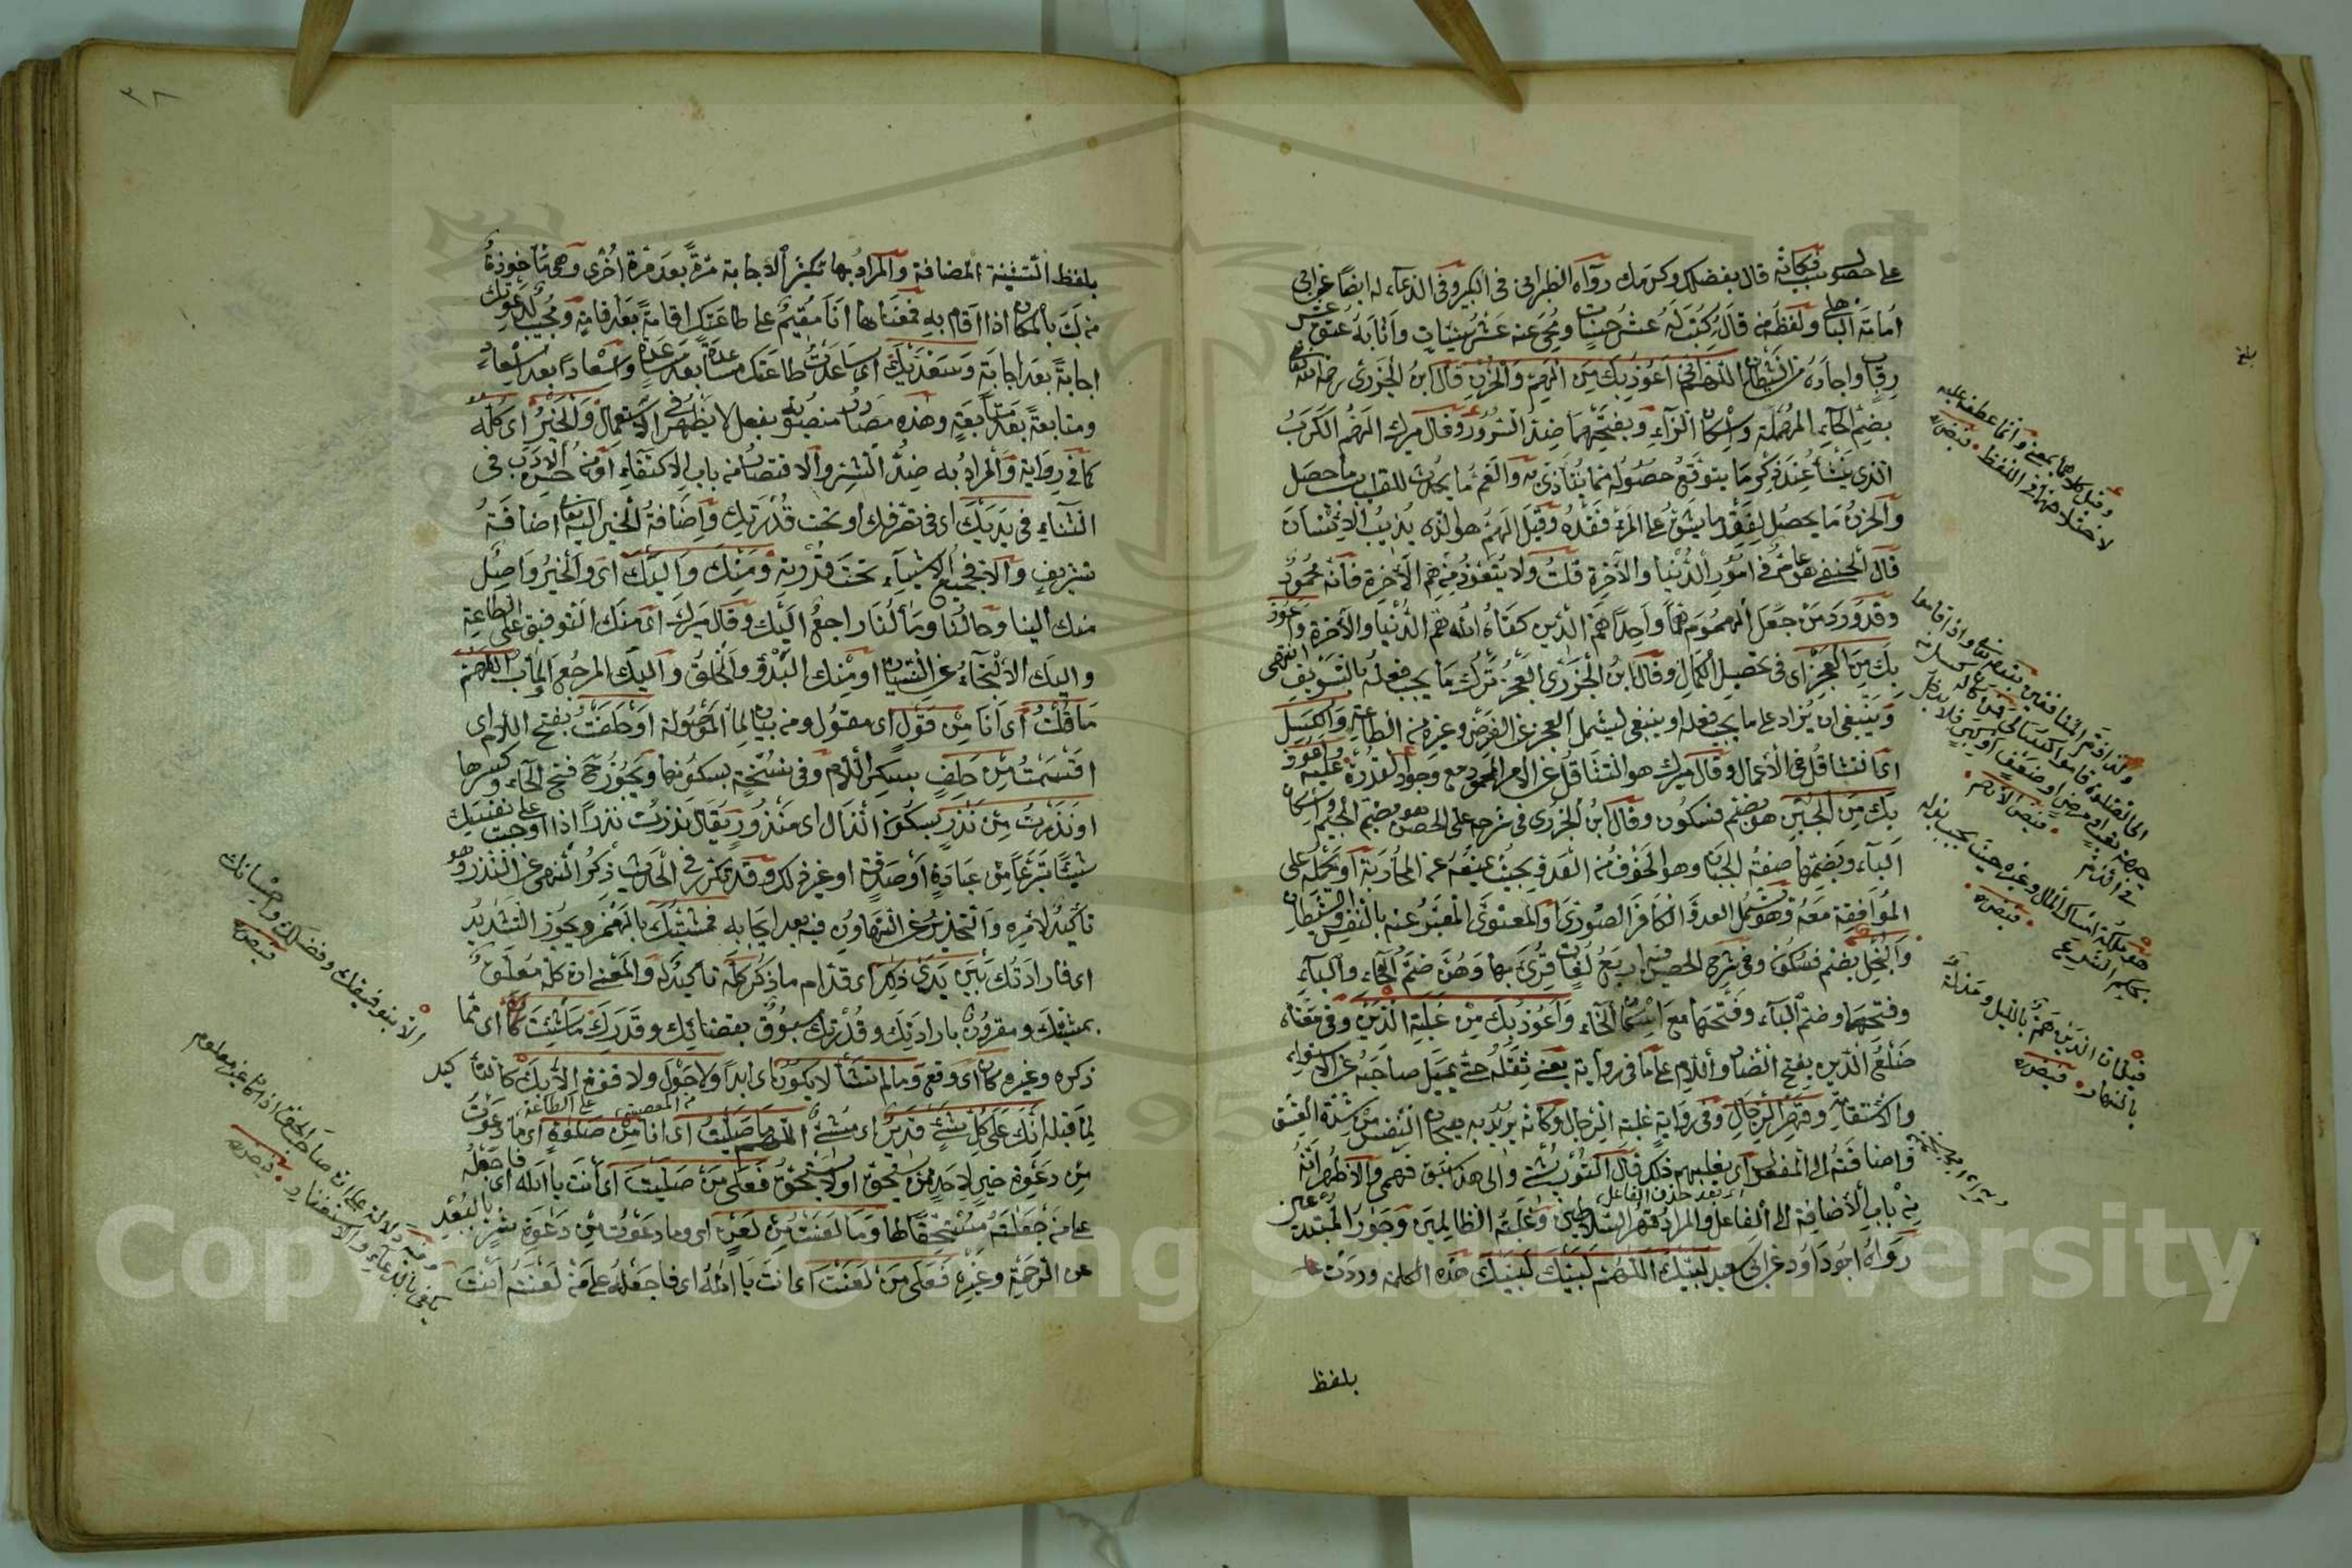 على حصول سببه فكانه قال بفضلك وكرمك رواه الطبراني في الكبير وفي الدعاء له ايضا عن ابي
امامة الباهلي ولفظه من قاله كتب له عشر حسنات ومحي عنه عشر سيئات واثابه عتق عشر
رقاب واجاره من الشيطان اللهم اني اعوذ بك من الهم والحزن قال ابن الجزري رحمه الله
بضم الحاء المهملة واسكان الزاء وبفتحهما ضد السرور وقال ميرك الهم الكرب
الذي ينشأ عند ذكر ما يتوقع حصوله مما يتأذى به والغم ما يحدث للقلب بسبب ما حصل
والحزن ما يحصل لفقد ما يشق على المرء فقده وقيل الهم هو الذي يذيب الانسان
قال الحنفي هو عام في امور الدنيا والآخرة قلت ولا يتعوذ من هم الآخرة فانه محمود
وقد ورد من جعل الهموم هما واحدا هم الدين كفاه الله هم الدنيا والآخرة واعوذ
بك من العجز اي في تحصيل الكمال وقال ابن الجزري العجز ترك ما يجب فعله بالتسويف انتهى
وينبغي ان يزاد على ما يجب فعله او ينبغي ليشمل العجز عن الفرض وغيره من الطاعة والكسل
اي التثاقل في الأعمال وقال ميرك هو التثاقل عن الامر المحمود مع وجود القدرة عليه واعوذ
بك من الجبن هو بضم فسكون وقال ابن الجزري في شرحه على الحصن هو بضم الجيم واسكان
الباء وبضمهما صفة الجبان وهو الخوف من العدو بحيث يمنعه عن المحاربة او يحمله على
الموافقة معه وهو يشمل العدو الكافر الصوري والمعنوي المعبر عنه بالنفس والشيطان
والبخل بضم فسكون وفي شرح الحصن فيه اربع لغات قرئ بها وهن ضم الخاء والباء
وفتحهما وضم الباء وفتحها مع اسكان الخاء واعوذ بك من غلبة الدين وفي معناه
ضلع الدين بفتح الضاد واللام على ما في رواية يعني ثقله حتى يميل صاحبه عن الاستواء
والاستقامة وقهر الرجال وفي رواية غلبة الرجال وكانه يريد به هيجان النفس من شدة الشبق
واضافته الى المفعول اي يغلبهم ذلك قال التوربشتي والى هذا سبق فهمي والاظهر انه
من باب الأضافة الى الفاعل والمراد قهر السلاطين وغلبة الظالمين وجور المبتدعين
رواه ابو داود عن ابي سعيد لبيك اللهم لبيك لبيك هذه الكلمة وردت
بلفظ
وقيل كلاهما بمعنى وانما عطفه عليه
لاختلافهما في اللفظ
بلفظ التثنية المضافة والمراد بها تكثير الاجابة مرة بعد مرة اخرى وهي مأخوذة
من لب بالمكان اذا اقام به فمعناها انا مقيم على طاعتك اقامة بعد اقامة ومجيب لدعوتك
اجابة بعد اجابة وسعديك اي ساعدت طاعتك مساعدة بعد مساعدة واسعادا بعد اسعاد
ومتابعة بعد متابعة وهذه مصادر منصوبة بفعل لا يظهر في الاستعمال والخير اي كله
كما في رواية والمراد به ضد الشر والاقتصار من باب الاكتفاء او من حسن الادب في
الثناء في يديك اي في تصرفك او تحت قدرتك واضافة الخير اليه تعالى اضافة
تشريف والا فجميع الاشياء تحت قدرته ومنك واليك اي والخير واصل
منك الينا وحالنا ومآلنا راجع اليك وقال ميرك اي منك التوفيق على الطاعة
واليك الالتجاء عن النسيان او منك البدؤ والخلق واليك المرجع والمآب اللهم
ما قلت اي انا من قول اي مقول ومن بيان لما الموصولة او حلفت بفتح اللام اي
اقسمت من حلف بكسر اللام وفي نسخة بسكونها ويجوز ح فتح الحاء وكسرها
او نذرت من نذر بسكون الذال اي منذور يقال نذرت نذرا اذا اوجبت على نفسك
شيئا تبرعا من عبادة او صدقة او غير ذلك وقد تكرر في الحديث ذكر النهي عن النذر وهو
تأكيد لأمره والتحذير عن التهاون فيه بعد ايجابه فمشيئتك بالهمز ويجوز التشديد
اي فارادتك بين يدي ذلك اي قدام ما ذكر كله تأكيدله والمعنى ان كله معلق
بمشيئتك ومقرون بارادتك وقدرتك مسبوق بقضائك وقدرك ما شئت كان اي مما
ذكره وغيره كان اي وقع وما لم تشأ لا يكون اي ابدا ولا حول ولا قوة الا بك كالتأكيد
عن المعصية على الطاعة
لما قبله انك على كل شيء قدير اي مشيء اللهم ما صليت اي انا من صلوة اي ما دعوت
من دعوة خير لاحد ممن يستحق او لا يستحق فعلى من صليت اي أنت يا الله اي فاجعله
على من جعلته مستحقا لها وما لعنت من لعن اي وما دعوت من دعوة شر بالبعد
عن الرحمة وغيره فعلى من لعنت اي انت يا الله اي فاجعله على من لعنته انت
الا بتوفيقك وفضلك واحسانك